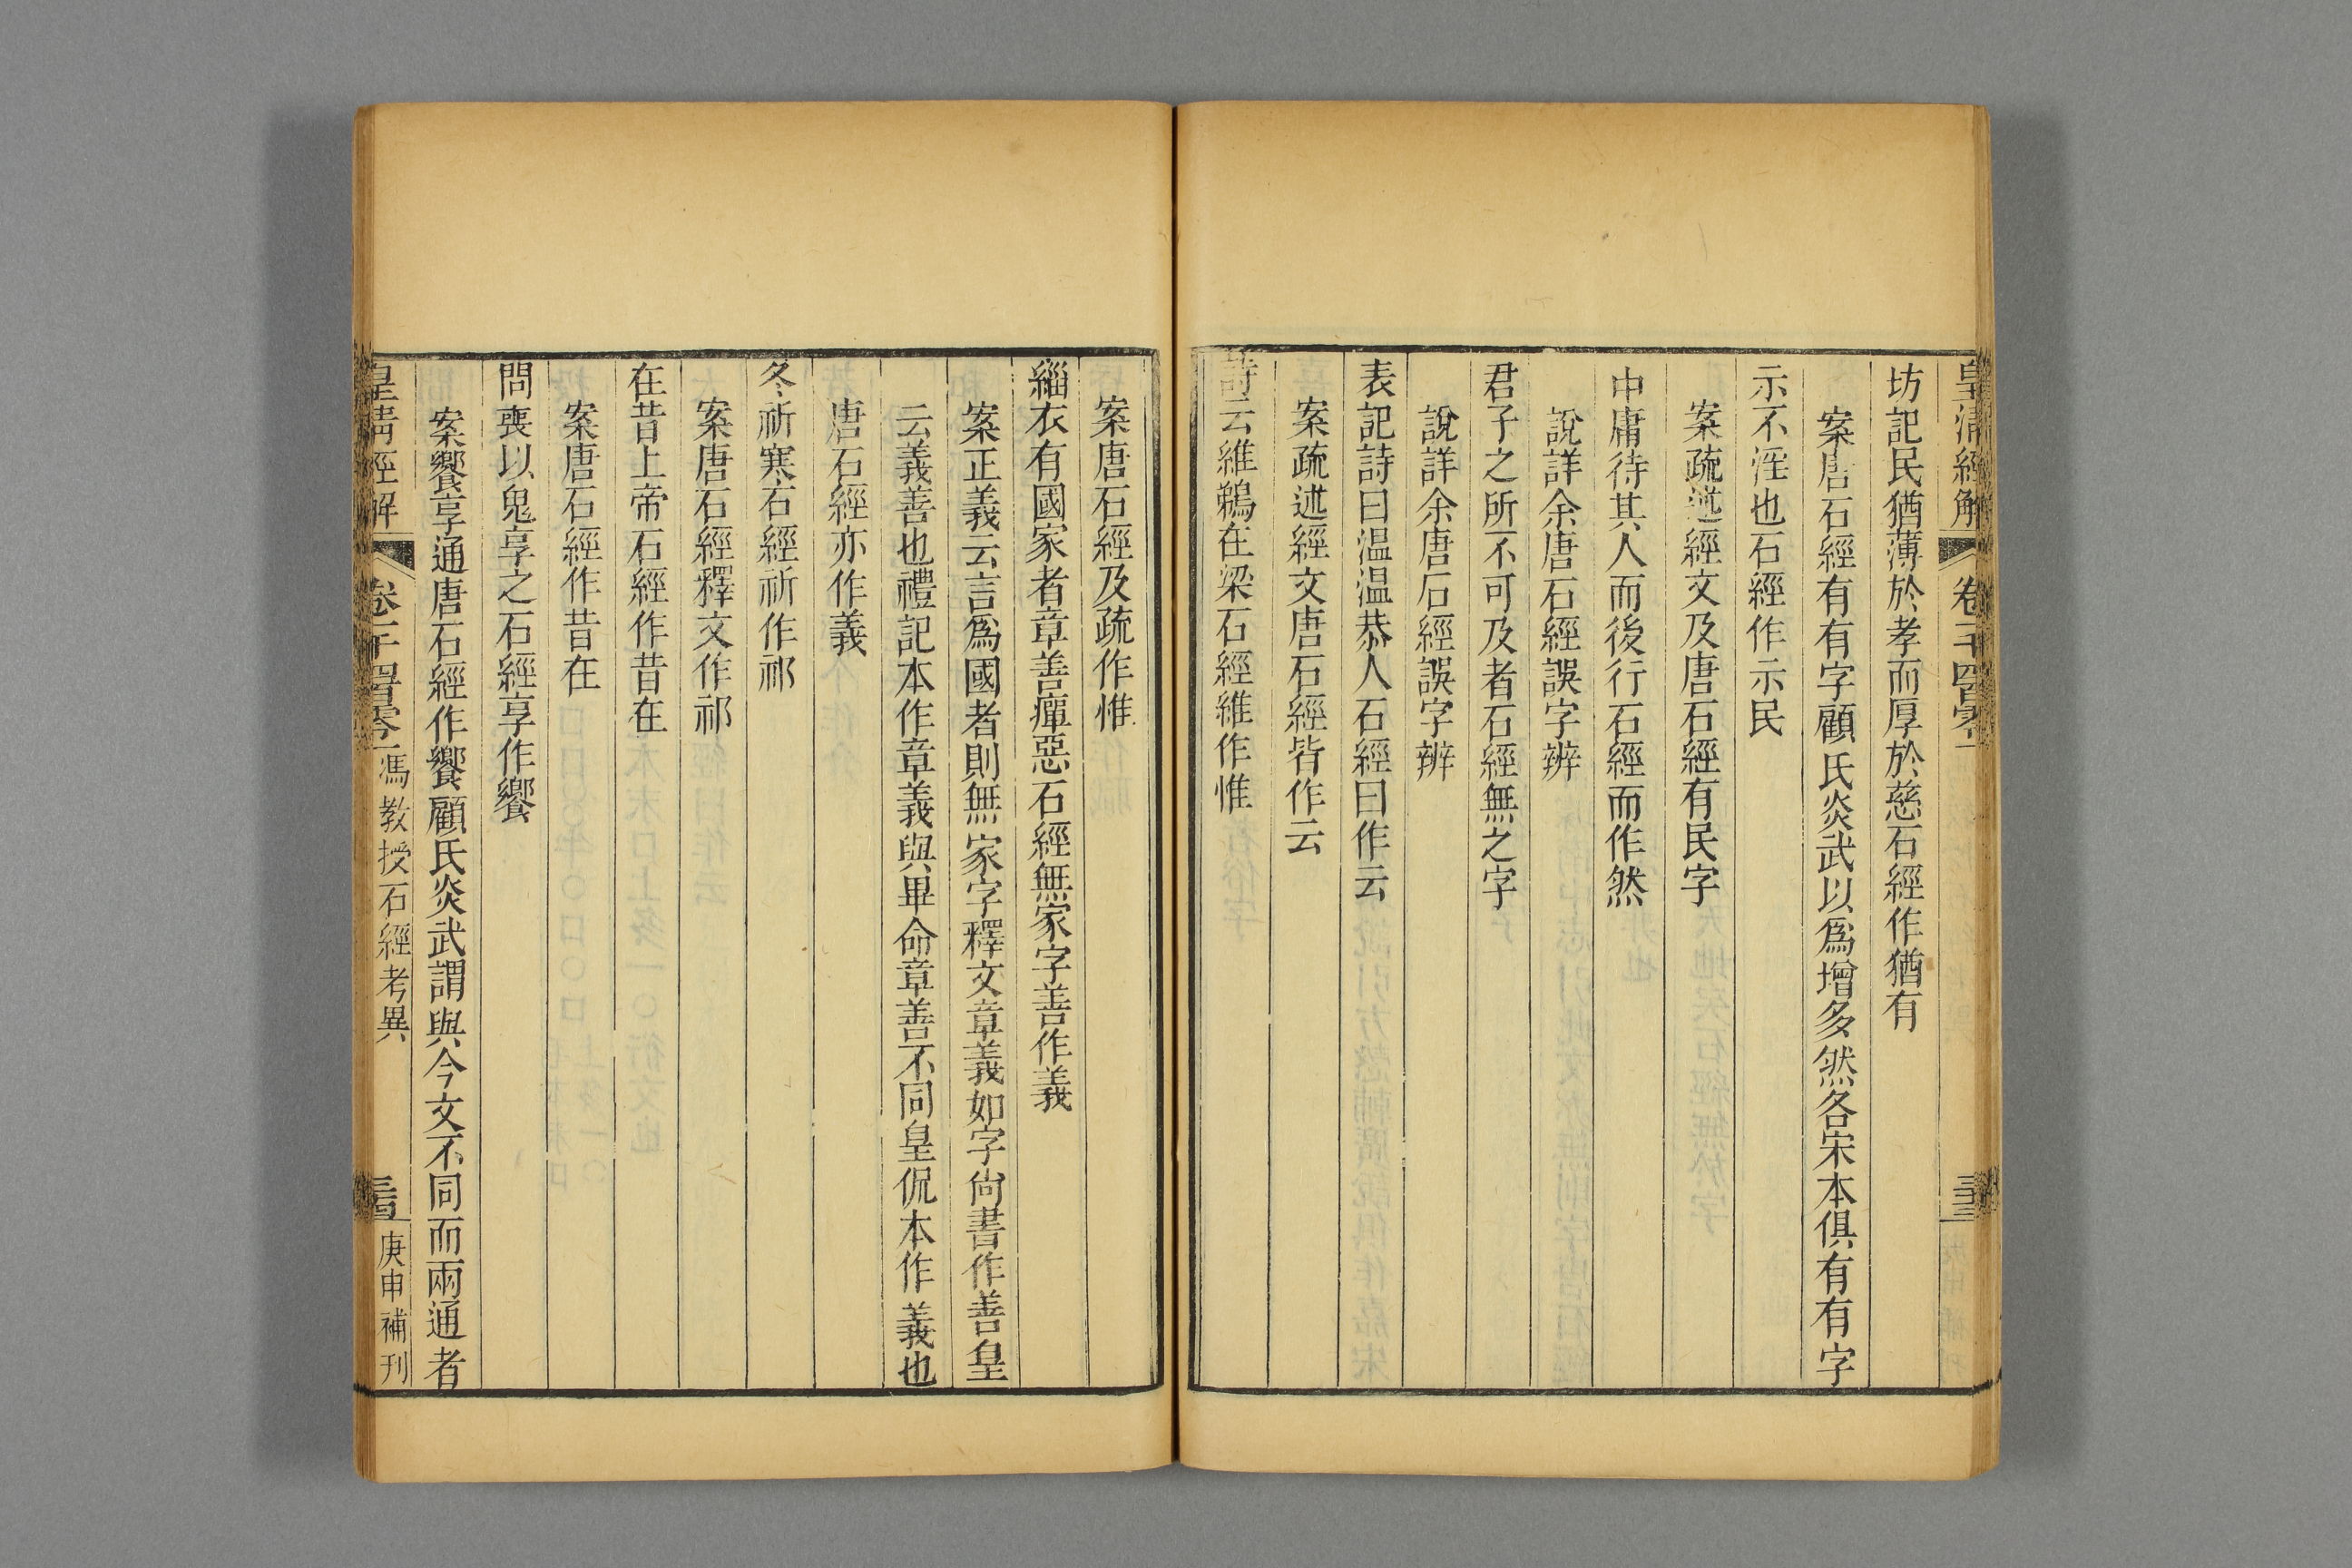 皇清經解 卷一千四百零一
坊記民猶薄於孝而厚於慈石經作猶有
案唐石經有有字顧氏炎武以爲增多然各宋本俱有有字
示不淫也石經作示民
案疏述經文及唐石經有民字
中庸待其人而後行石經而作然
說詳余唐石經誤字辨
君子之所不可及者石經無之字
說詳余唐石經誤字辨
表記詩曰温温恭人石經曰作云
案疏述經文唐石經皆作云
詩云維鵜在梁石經維作惟
案唐石經及疏作惟
緇衣有國家者章善癉惡石經無家字善作義
案正義云言爲國者則無家字釋文章義如字尙書作善皇
云義善也禮記本作章義與畢命章善不同皇侃本作義也
唐石經亦作義
冬祈寒石經祈作祁
案唐石經釋文作祁
在昔上帝石經作昔在
案唐石經作昔在
問喪以鬼享之石經享作饗
案饗享通唐石經作饗顧氏炎武謂與今文不同而兩通者
皇清經解 卷一千四百零一 馮教授石經考異 庚申補刊